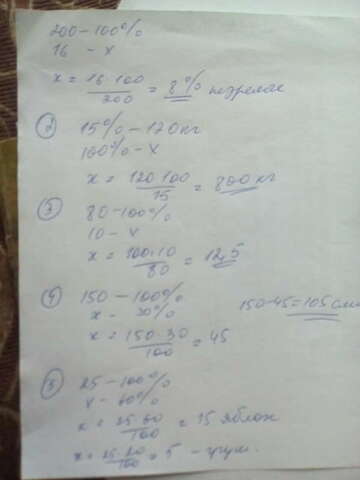 200 - 100%
16 - x
x = 16·100 / 200 = 8%
2) 15% - 120 кг
100% - x
x = 120·100 / 15 = 800 кг
3) 80 - 100%
10 - x
x = 100·10 / 80 = 12,5
4) 150 - 100%
x - 30%
x = 150·30 / 100 = 45
150-45=105
5) 25 - 100%
x - 60%
x = 25·60 / 100 = 15 яблон
x = 25·20 / 100 = 5 - груш.